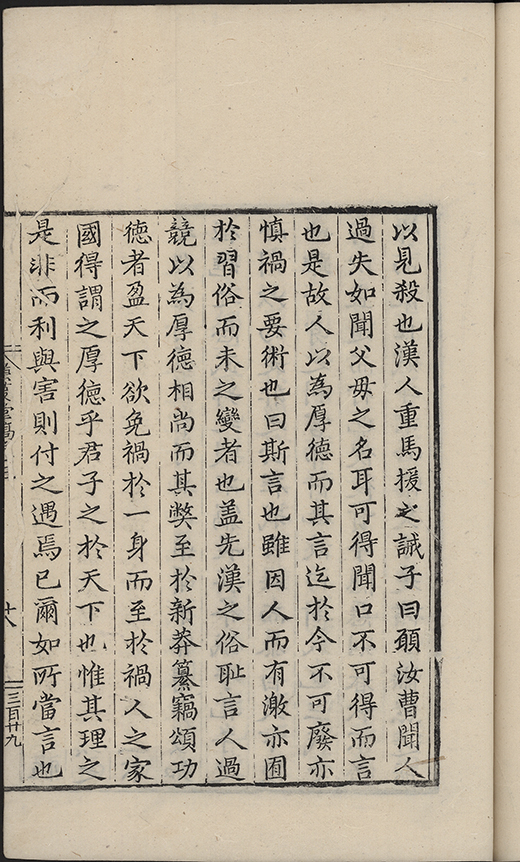 以見殺也漢人重馬援之誡子曰願汝曹聞人
過失如聞父毋之名耳可得聞口不可得而言
也是故人以為厚德而其言迄於今不可廢亦
慎禍之要術也曰斯言也雖因人而有激亦囿
於習俗而未之變者也盖先漢之俗耻言人過
競以為厚德相尚而其獘至於新莽纂竊頌功
德者盈天下欲免禍於一身而至於禍人之家
國得謂之厚德乎君子之於天下也惟其理之
是非而利與害則付之遇焉已爾如所當言也
三百廿九